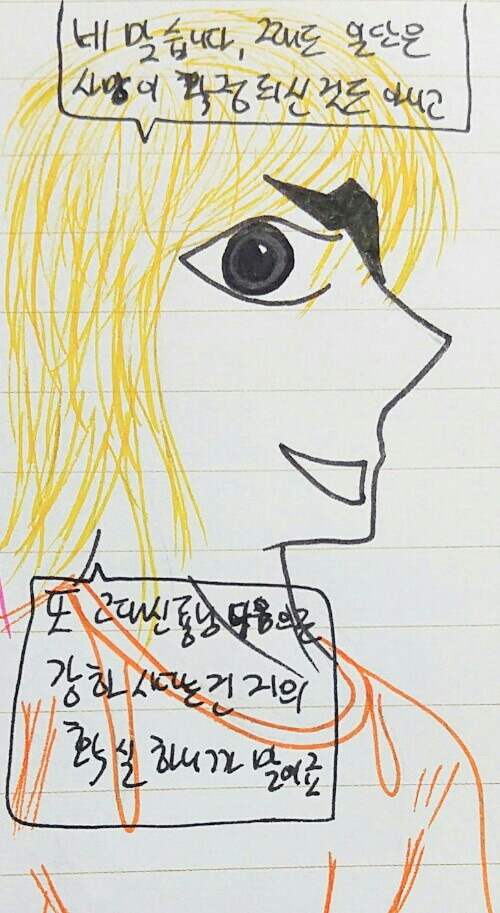 네 맞습니다, 그래도 일단은
사망이 확정되신 것도 아니고
또 그대신 흉낭 마음으론
강하시다는건 거의
확실하니까 말이죠